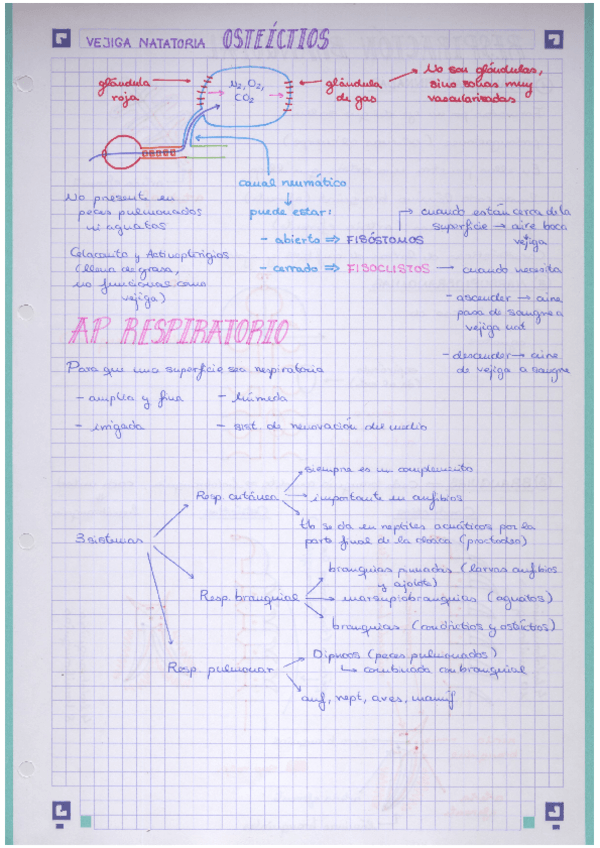 VEJIGA NATATORIA OSTEÍCTIOS
glándula
roja
N2, O2,
CO2
glándula
de gas
→ No son glándulas,
sino zonas muy
vascularizadas
canal neumático
↓
puede estar:
- abierto ⇒ FISÓSTOMOS
- cerrado ⇒ FISOCLISTOS
→ cuando están cerca de la
superficie → aire boca
vejiga
→ cuando necesita
- ascender → aire
pasa de sangre a
vejiga nat
- descender → aire
de vejiga a sangre
No presente en
peces pulmonados
ni agnatos
Celacanto y Actinopterigios
(llena de grasa,
no funcional como
vejiga)
AP. RESPIRATORIO
Para que una superficie sea respiratoria
- amplia y fina - húmeda
- irrigada - sist. de renovación del medio
3 sistemas
Resp cutánea
siempre es un complemento
importante en anfibios
tb se da en reptiles acuáticos por la
parte final de la cloaca (proctodeo)
Resp. branquial
branquias pinnadas (larvas anfibios
y ajolote)
marsupiobranquias (agnatos)
branquias (condrictios y osteíctios)
Resp pulmonar
Dipnoos (peces pulmonados)
↳ combinada con branquial
anf, rept, aves, mamíf